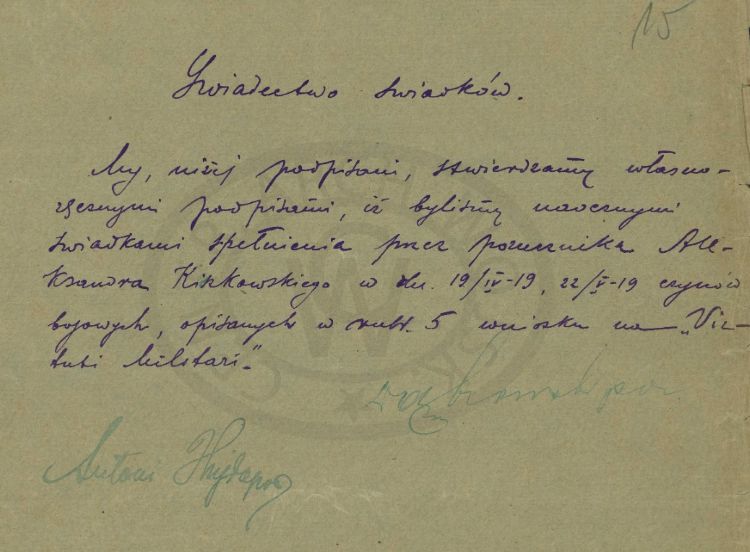 15
Świadectwo świadków.
My, niżej podpisani, stwierdzamy własno-
ręcznymi podpisami, iż byliśmy naocznymi
świadkami spełnienia przez porucznika Ale-
ksandra Kiłkowskiego w dn. 19/IV-19, 22/V-19 czynów
bojowych, opisanych w rubr. 5 wniosku na „Vir-
tuti Militari".
Antoni